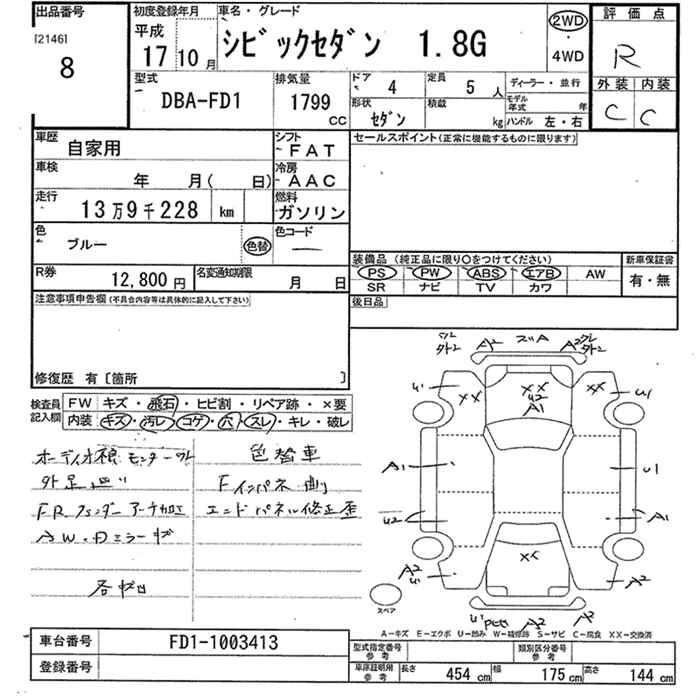 出品番号 初度登録年月 車名・グレード 評価点
[2146] 8 平成 17 10月 シビックセダン 1.8G 2WD ・ 4WD R
型式 排気量 ドア 定員 ディーラー・並行 外装 内装
DBA-FD1 1799 CC 4 5 人 C C
形状 積載 モデル年式 年
セダン kg ハンドル 左・右
車歴 シフト セールスポイント(正常に機能するものに限ります)
自家用 FAT
車検 冷房
年 月( 日) AAC
走行 燃料
13万9千228 km ガソリン
色 色コード
ブルー 色替 ―
装備品 (純正品に限り○をつけてください) 新車保証書
R券 12,800円 名変通知期限 月 日 PS PW ABS エアB AW 有・無
SR ナビ TV カワ
注意事項申告欄 (不具合内容等は具体的に記入して下さい) 後日品
修復歴 有 〔箇所 〕
検査員記入欄 FW キズ・飛石・ヒビ割・リペア跡・×要
内装 キズ・汚レ・コゲ・穴・スレ・キレ・破レ
色替車
外足廻り Fインパネ
FRフェンダーアーチ加工 エンドパネル修正歪
AW・Dミラーキズ
各キズ凹
A2 ズレA A2
U1 XX XX U2 A1 XX U1
A1 U1
U2 A1
XX
A2 U1 A2
スペア U1 A2 A2
A―キズ E―エクボ U―凹み W―補修跡 S―サビ C―腐食 XX―交換済
車台番号 FD1-1003413 型式指定番号 参考 類別区分番号 参考
登録番号 車庫証明用 参考 長さ 454 cm 幅 175 cm 高さ 144 cm